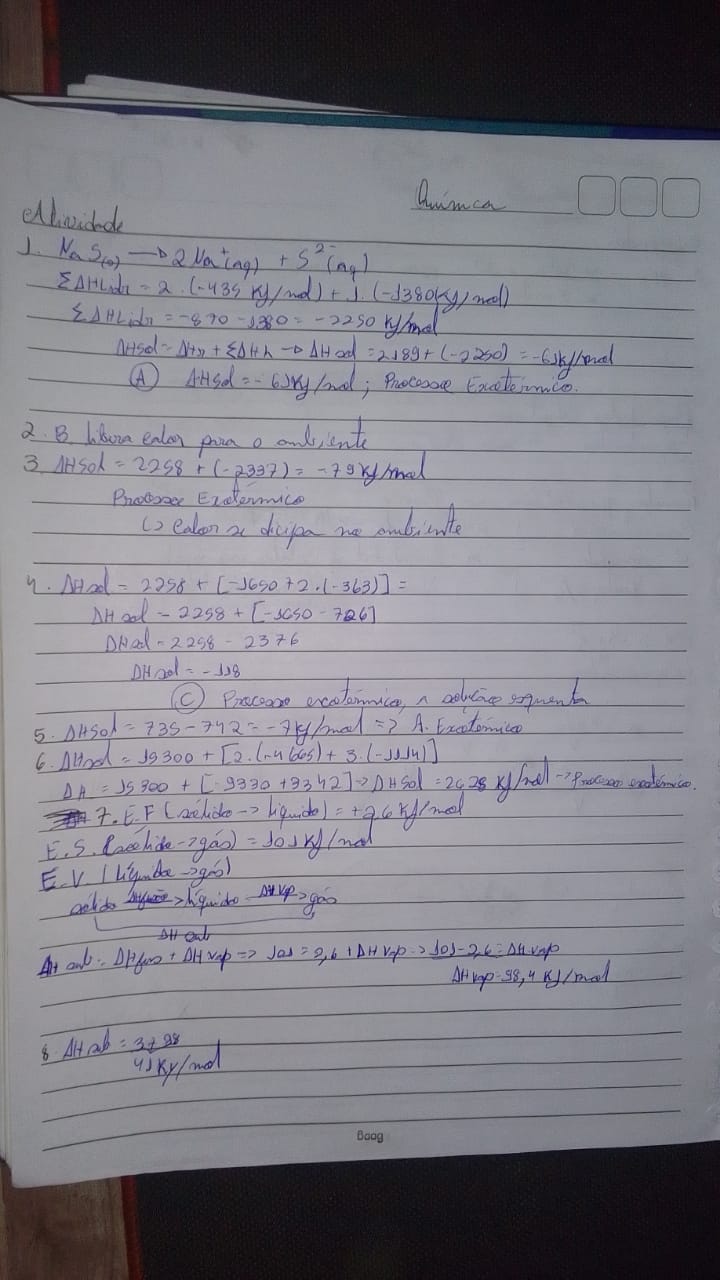 Química
Atividade
1. NaS(s) → 2Na⁺(aq) + S²⁻(aq)
ΣΔHhidr = 2.(-435 KJ/mol) + 1.(-1380KJ/mol)
ΣΔHhidr = -870 - 1380 = -2250 KJ/mol
ΔHsol = ΔHr + ΣΔHh → ΔHsol = 2189 + (-2250) = -61KJ/mol
(A) ΔHSol = -61KJ/mol; Processo Exotérmico.
2. B. libera calor para o ambiente
3. ΔHSol = 2258 + (-2337) = -79KJ/mol
Processo Exotérmico
↳ Calor se dicipa no ambiente
4. ΔHsol = 2258 + [-1650 + 2.(-363)] =
ΔHsol = 2258 + [-1650 - 726]
ΔHsol = 2258 - 2376
ΔHsol = -118
(C) Processo exotérmico, a solução esquenta
5. ΔHSol = 735 - 742 = -7KJ/mol => A. Exotérmico
6. ΔHsol = 15300 + [2.(-4665) + 3.(-1114)]
ΔH = 15300 + [-9330 + 3342] → ΔHsol = 2628 KJ/mol → Processo
7. E.F (sólido → líquido) = +2,6 KJ/mol
E.S. (sólido → gás) = 101KJ/mol
E.V. (líquido → gás)
sólido → líquido ΔHvp → gás
ΔH sub
ΔH sub = ΔHfus + ΔHvap => 101 = 2,6 + ΔHvap → 101 - 2,6 = ΔHvap
ΔHvap = 98,4 KJ/mol
8. ΔHsub = 3+38
41KJ/mol
Baag